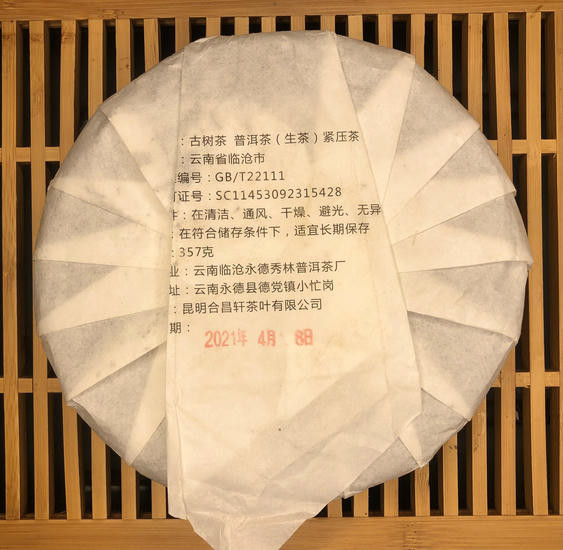 ：古树茶 普洱茶（生茶）紧压茶
：云南省临沧市
编号：GB/T22111
证号：SC11453092315428
：在清洁、通风、干燥、避光、无异
：在符合储存条件下，适宜长期保存
：357克
业：云南临沧永德秀林普洱茶厂
址：云南永德县德党镇小忙岗
：昆明合昌轩茶叶有限公司
期：
2021年 4月 8日